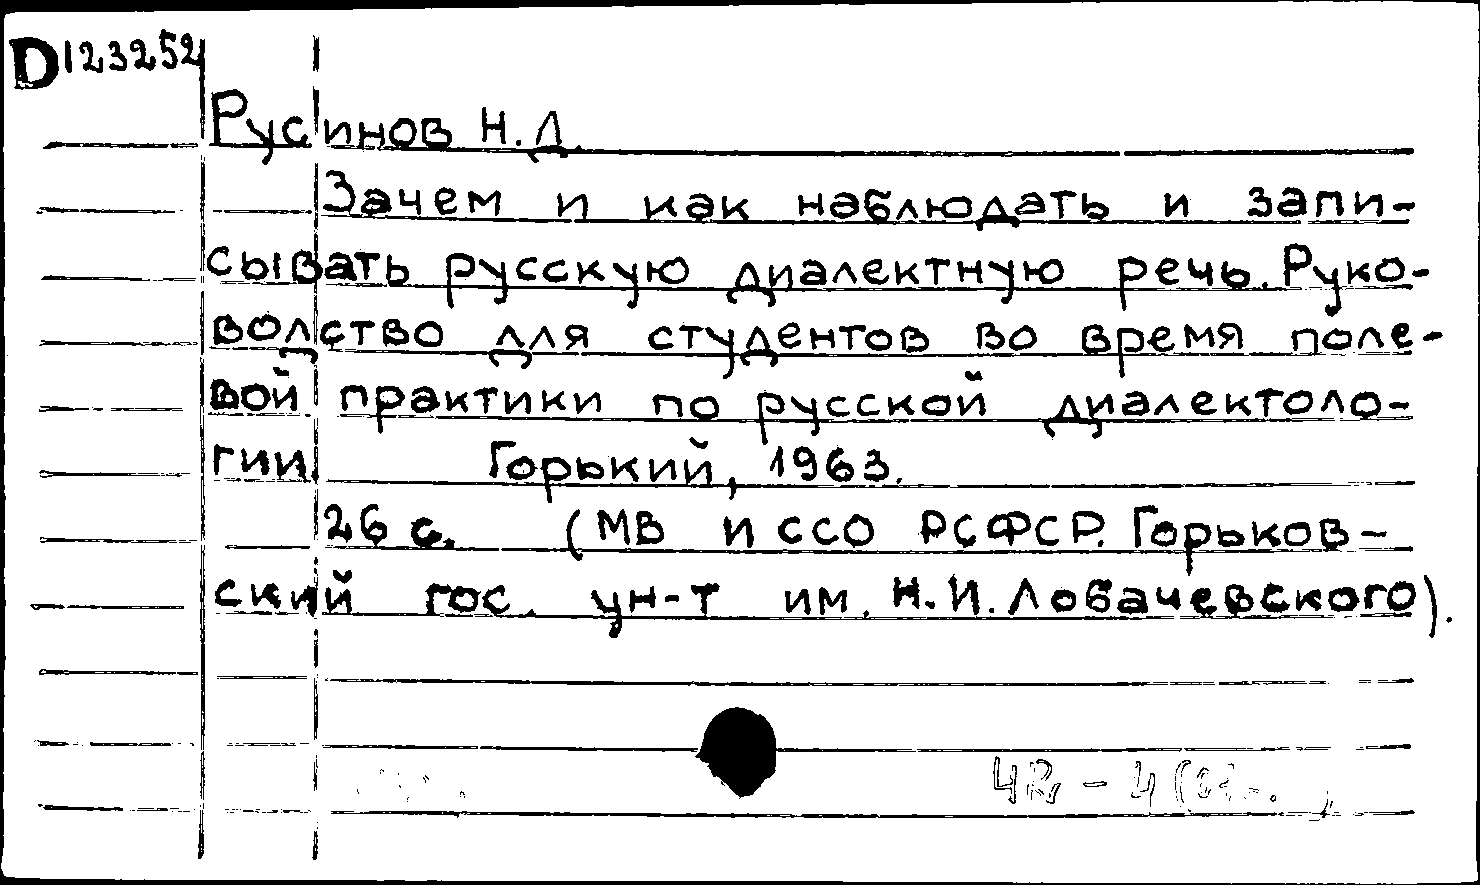 D123252
Русинов Н. Д.
Зачем и как наблюдать и запи-
сывать русскую диалектную речь. Руко-
водство для студентов во время поле-
вой практики по русской диалектоло-
гии. Горький, 1963.
26 с. (МВ и ССО РСФСР. Горьков-
ский гос. ун-т им. Н.И. Лобачевского).